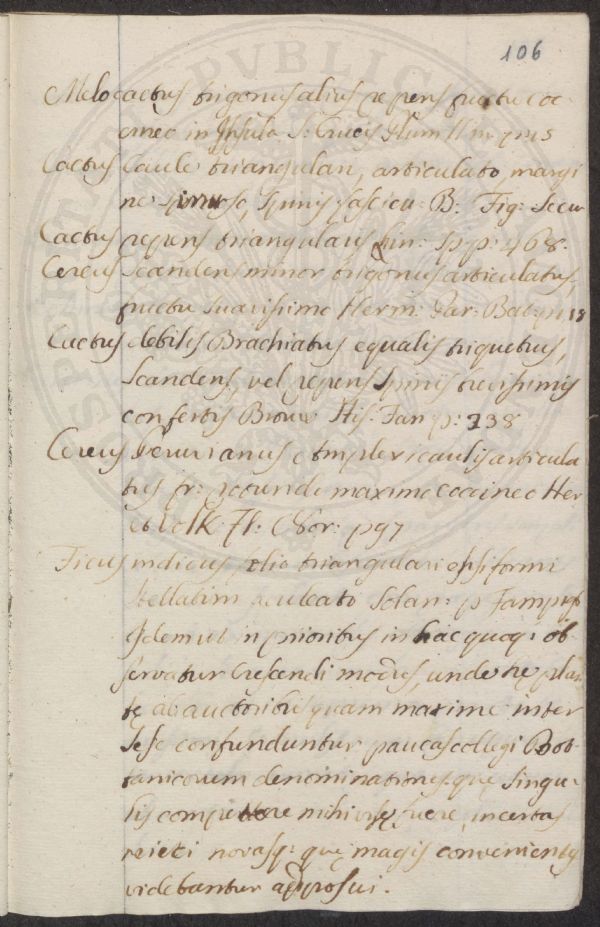 106
Melocactus trigonus alius repens fructu coc-
cineo in Insula S: Crucis Plum
Cactus Caule triangulari, articulato, margi
ne spinoso, spinis fascicu: B: Fig: Secu
Cactus repens triangularis Lin: Sp p: 468.
Cereus Scandens minor trigonus articulatus,
fructu suavissimo Herm: Par: Bat p: 118
Cactus debilis Brachiatus equalis triquetrus,
Scandens, vel repens spinis brevissimis
confertis Brow His. Jam p: 238
Cereus Peruvianus caulis articula
tus fr: rotundo maximo coccineo Her
et Volk: Fl: Nor: p 97
Ficus indicus folio triangulari ensiformi
stellatim aculeato Sloan:
Idem ut in prioribus in hac quoq: ob-
servatur Crescendi modus, unde hę plan
tę ab auctoribus quam maxime inter
sese confunduntur paucas collegi Bot-
tanicorum denominationes quę singu-
lis competere mihi visę fuere, incertas
reieti novasq: quę magis convenientes
videbantur apposui.